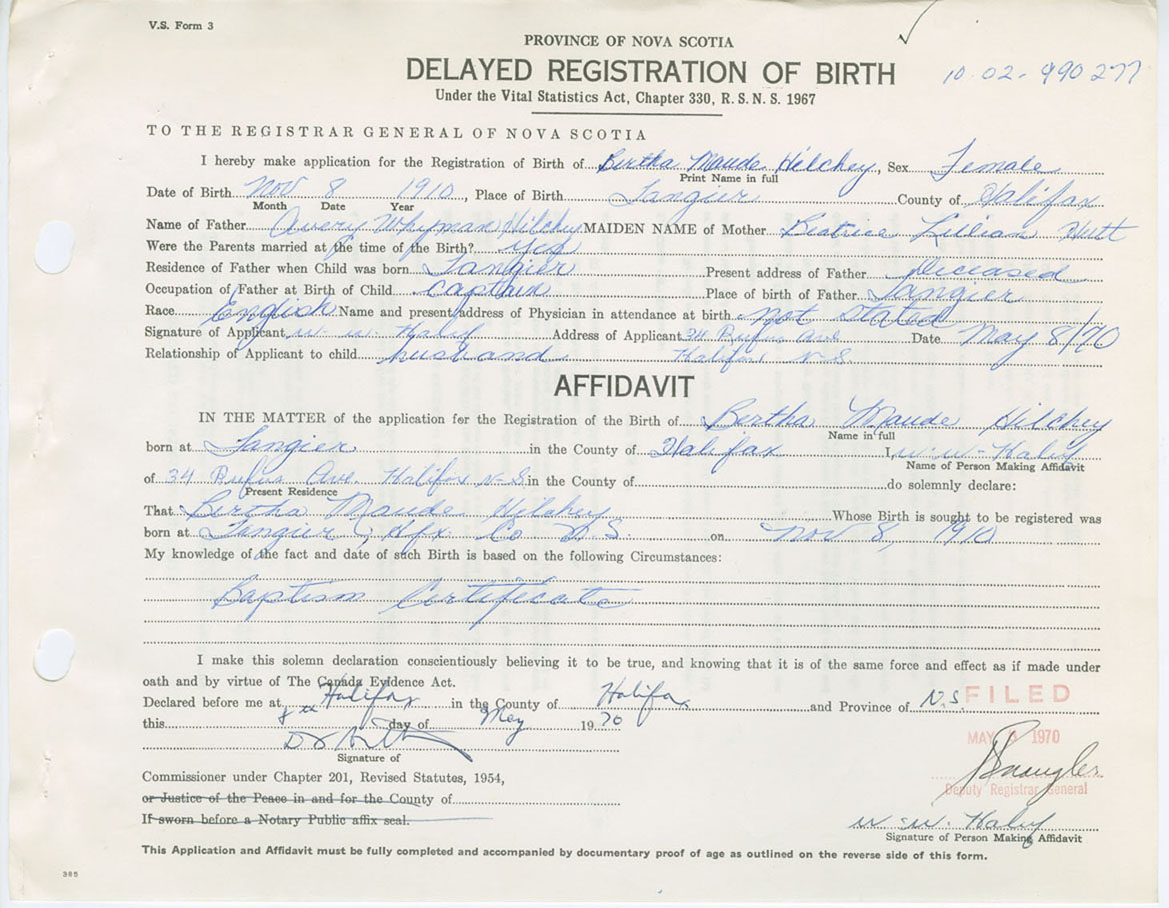 V.S. Form 3
PROVINCE OF NOVA SCOTIA
DELAYED REGISTRATION OF BIRTH
10 02- 990277
Under the Vital Statistics Act, Chapter 330, R.S.N.S. 1967
TO THE REGISTRAR GENERAL OF NOVA SCOTIA
I hereby make application for the Registration of Birth of Bertha Maude Hilchey, Sex Female
Print Name in full
Date of Birth Nov 8 1910, Place of Birth Tangier County of Halifax
Month Date Year
Name of Father Avery Whyman Hilchey MAIDEN NAME of Mother Beatrice Lillian Hutt
Were the Parents married at the time of the Birth? yes
Residence of Father when Child was born Tangier Present address of Father Deceased
Occupation of Father at Birth of Child Captain Place of birth of Father Tangier
Race English Name and present address of Physician in attendance at birth not stated
Signature of Applicant W. W. Address of Applicant 34 Rufus Ave Date May 8/70
Relationship of Applicant to child husband Halifax, N-S
AFFIDAVIT
IN THE MATTER of the application for the Registration of the Birth of Bertha Maude Hilchey
Name in full
born at Tangier in the County of Halifax I, W. W.
Name of Person Making Affidavit
of 34 Rufus Ave. Halifax N-S. in the County of do solemnly declare:
Present Residence
That Bertha Maude Hilchey Whose Birth is sought to be registered was
born at Tangier, Hfx Co N.S. on Nov 8, 1910
My knowledge of the fact and date of such Birth is based on the following Circumstances:
Baptism Certificate
I make this solemn declaration conscientiously believing it to be true, and knowing that it is of the same force and effect as if made under
oath and by virtue of The Canada Evidence Act.
Declared before me at Halifax in the County of Halifax and Province of N.S.
FILED
this 8th day of May 1970
MAY 1970
Signature of
Commissioner under Chapter 201, Revised Statutes, 1954,
Deputy Registrar General
or Justice of the Peace in and for the County of
If sworn before a Notary Public affix seal.
W. W.
Signature of Person Making Affidavit
This Application and Affidavit must be fully completed and accompanied by documentary proof of age as outlined on the reverse side of this form.
385